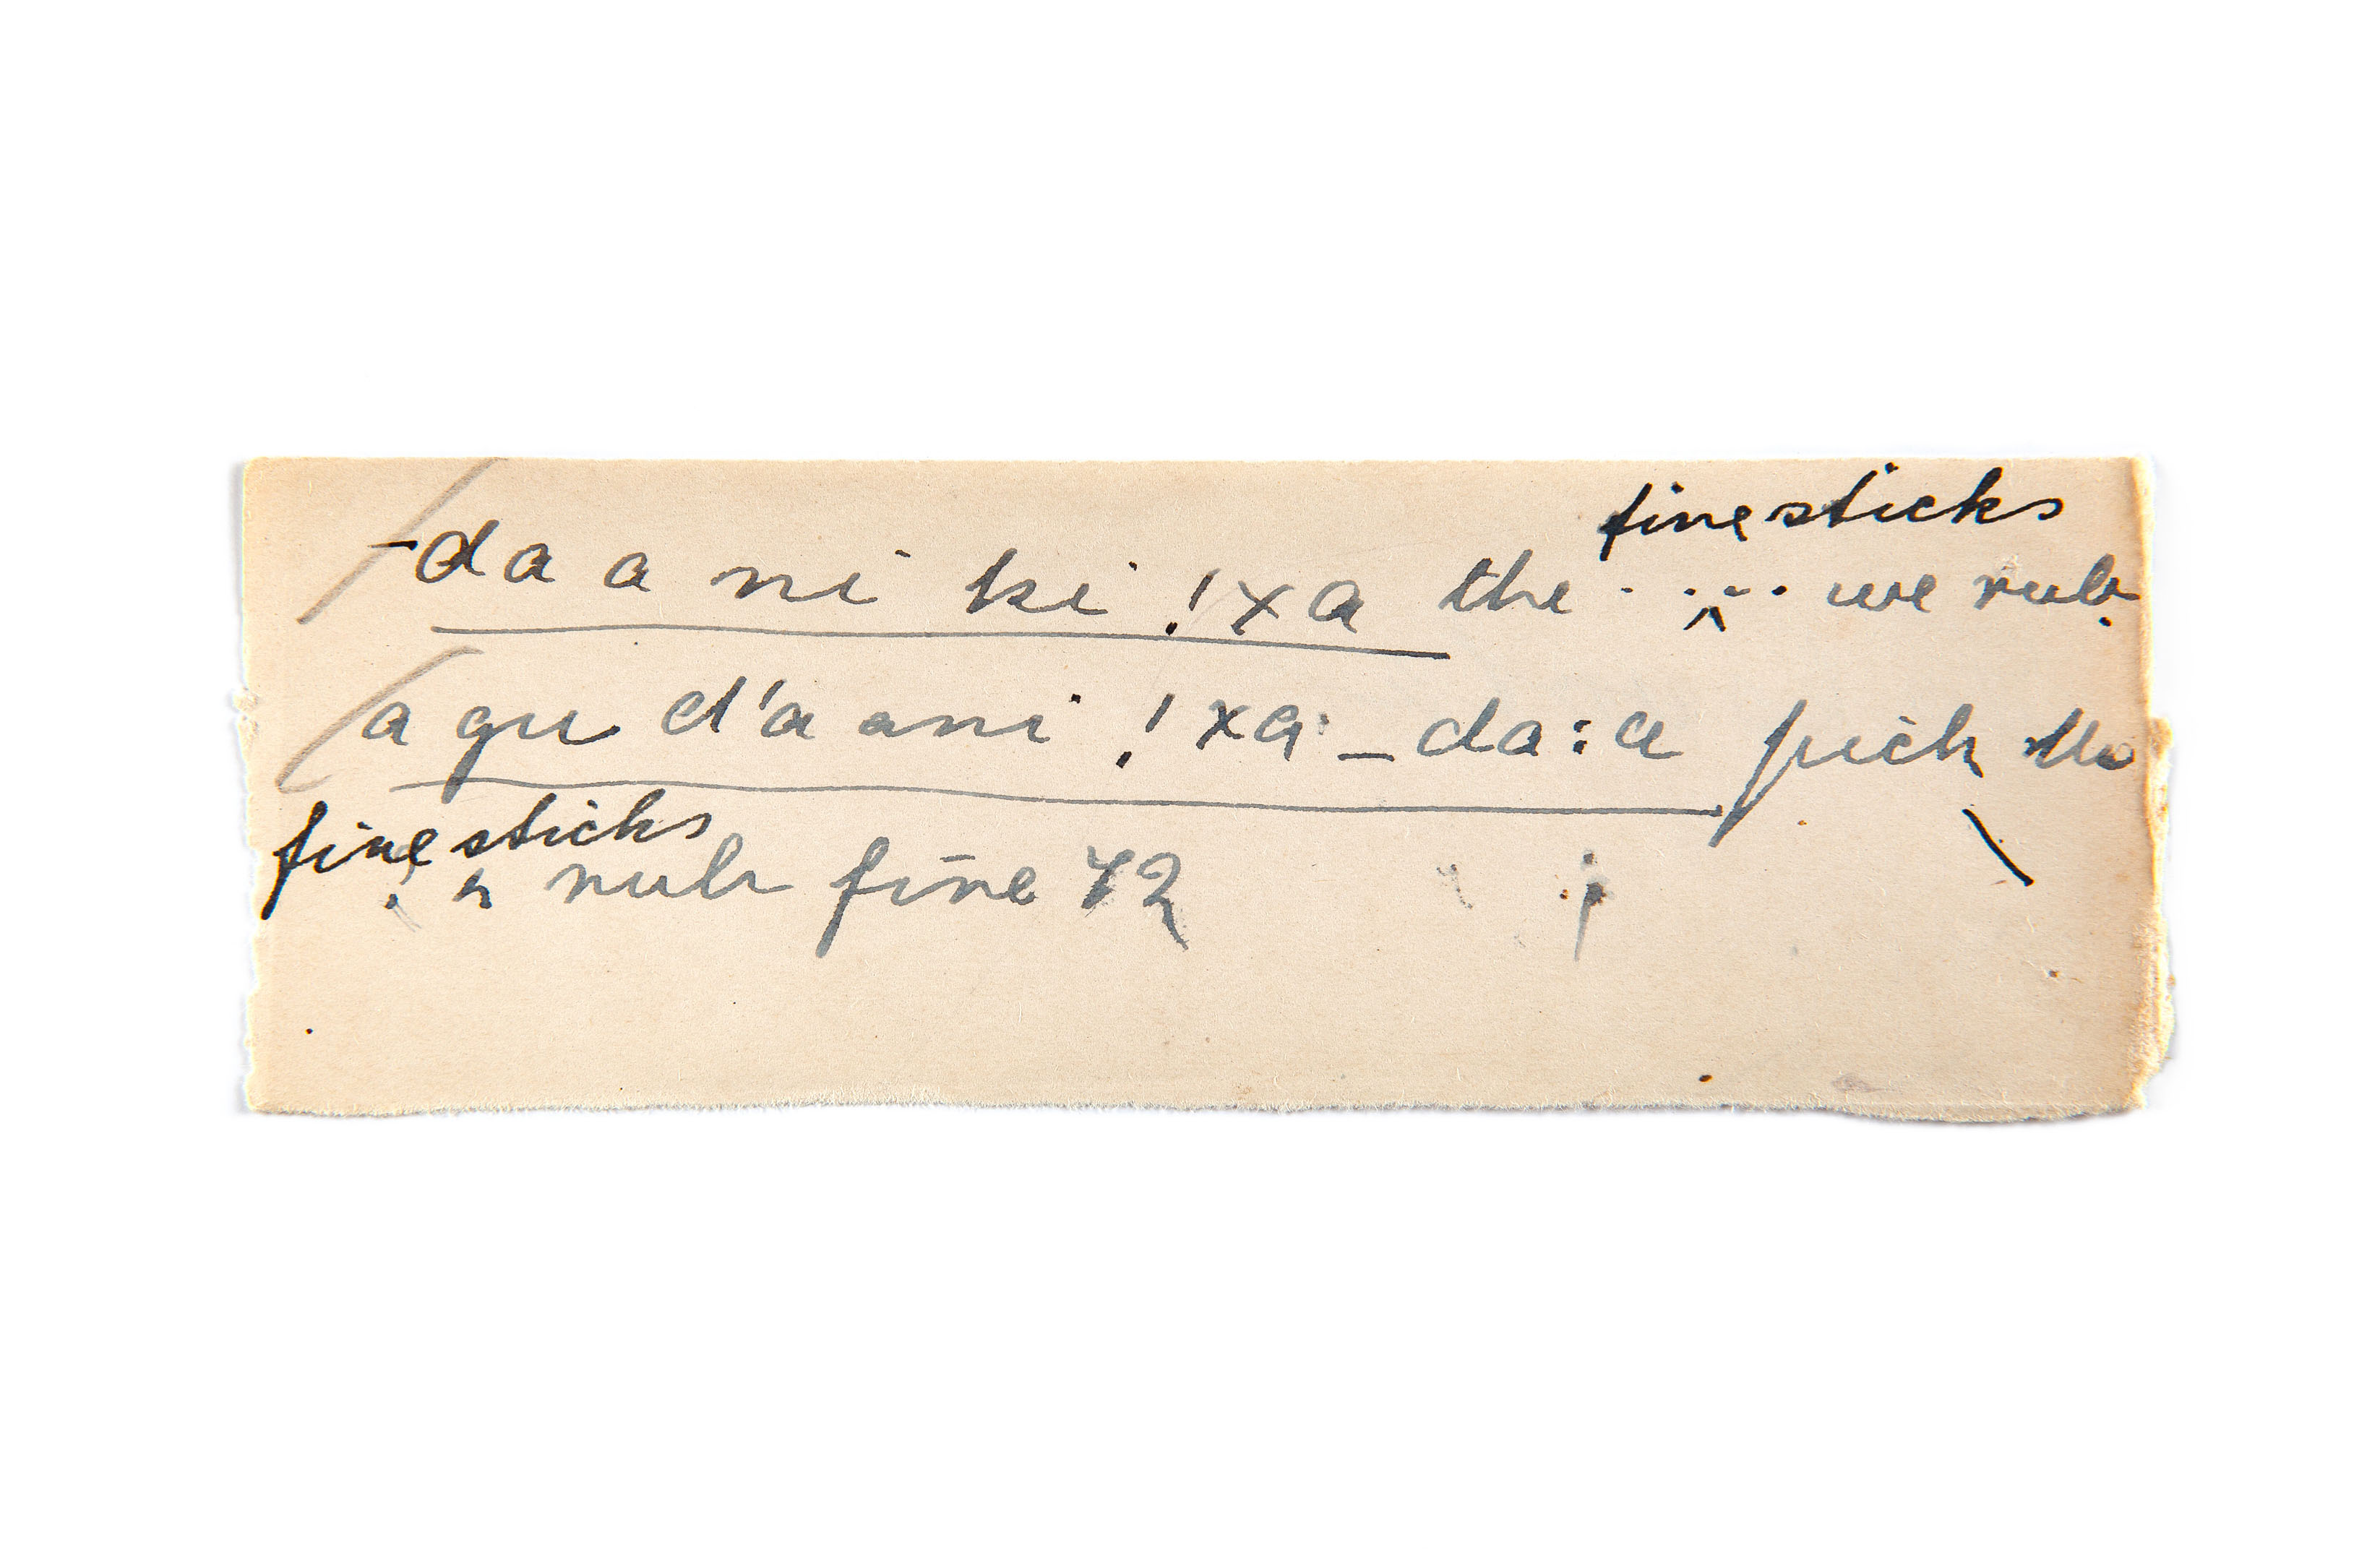 fire sticks
-da a ni ki !xa the . . . . we rub.
a gu d'a ani !xa _ da:a pick the
fire sticks
rub fire 42